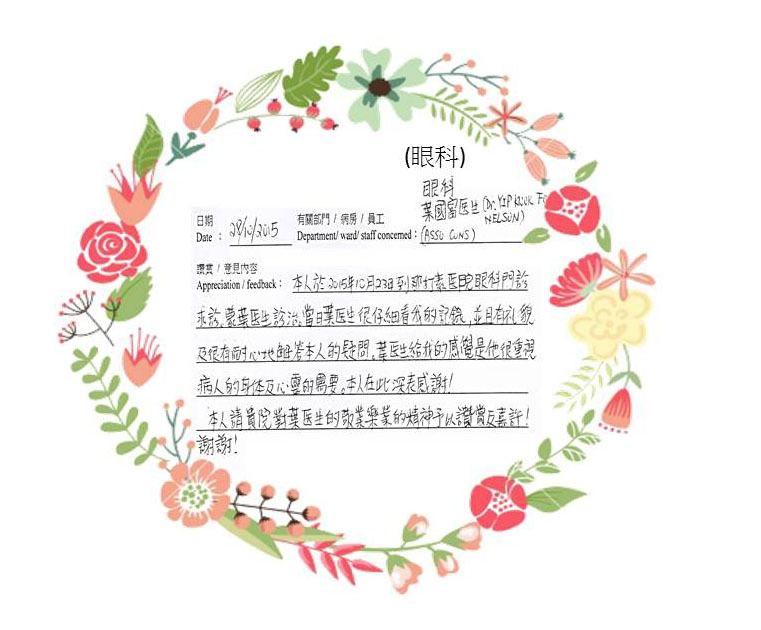 (眼科)
眼科
葉國富医生(Dr. YIP KWOK F
NELSON)
日期 有關部門 / 病房 / 員工
Date : 28/10/2015 Department/ ward/ staff concerned : (ASSO CONS)
讚賞 / 意見內容
Appreciation / feedback : 本人於2015年10月23日到那打素医院眼科門診
求診,蒙葉医生診治,當日葉医生很仔細看我的記錄,並且有礼貌
及很有耐心地解答本人的疑問。葉医生給我的感覺是他很重視
病人的身体及心靈的需要。本人在此深表感謝!
本人請貴院對葉医生的敬業樂業的精神予以讚賞及嘉許!
謝謝!